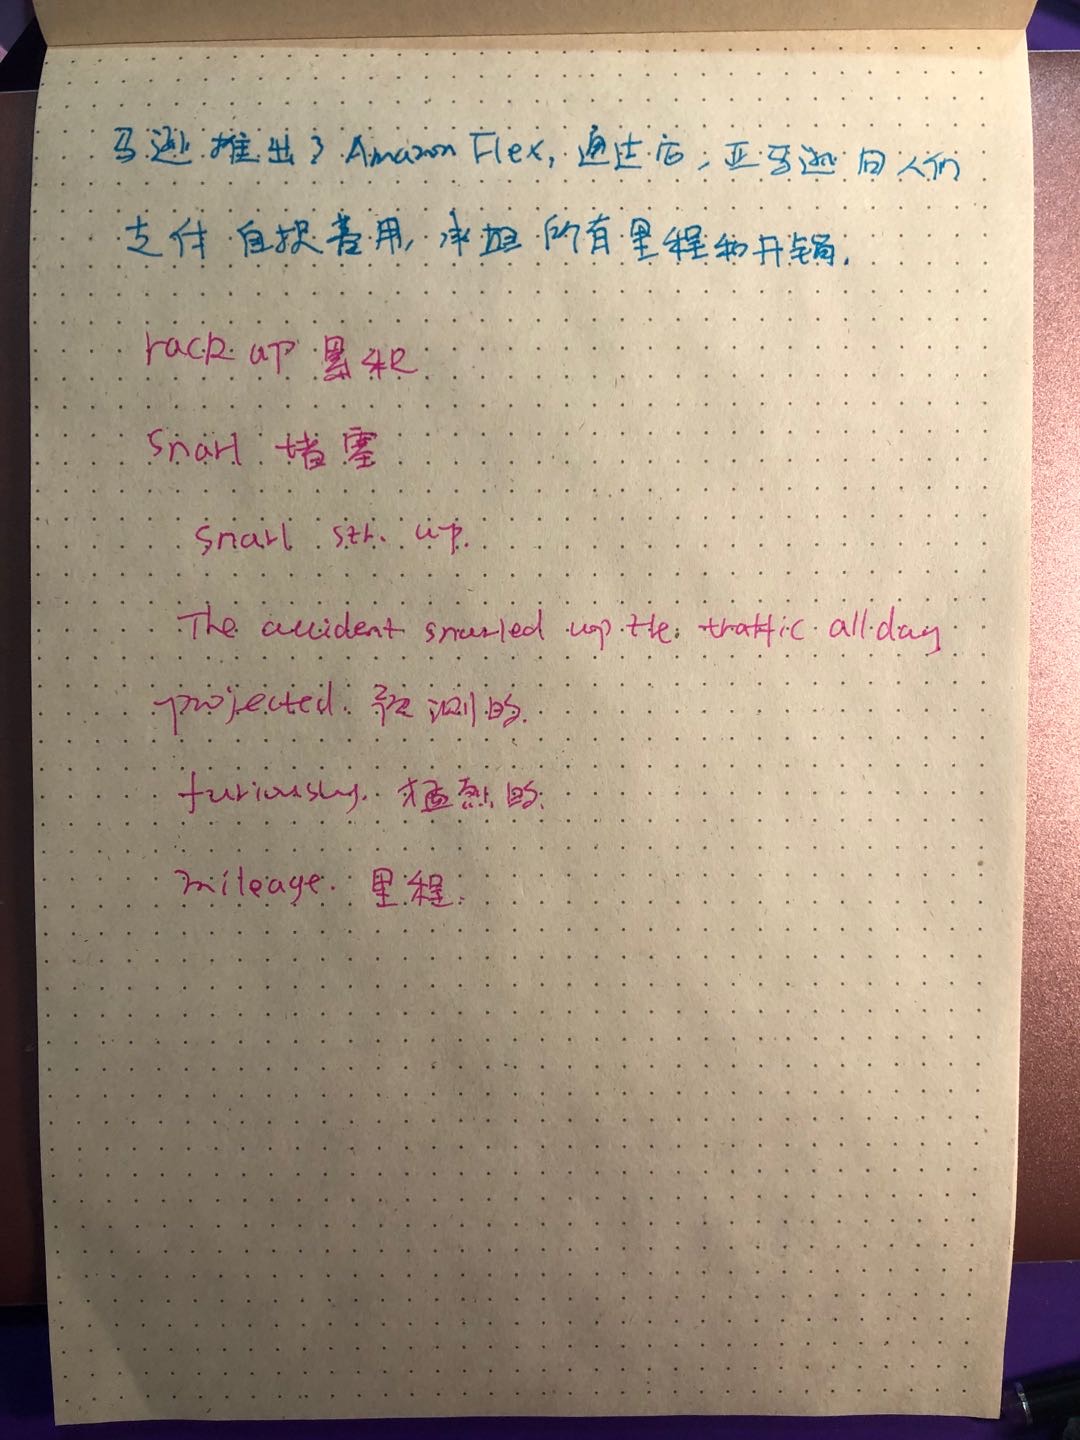 马逊推出了 Amazon Flex, 通过它, 亚马逊向人们
支付自担费用, 承担所有里程和开销.
rack up 累积
snarl 堵塞
snarl sth. up.
The accident snarled up the traffic all day
projected. 预测的.
furiously. 猛烈的.
mileage. 里程.